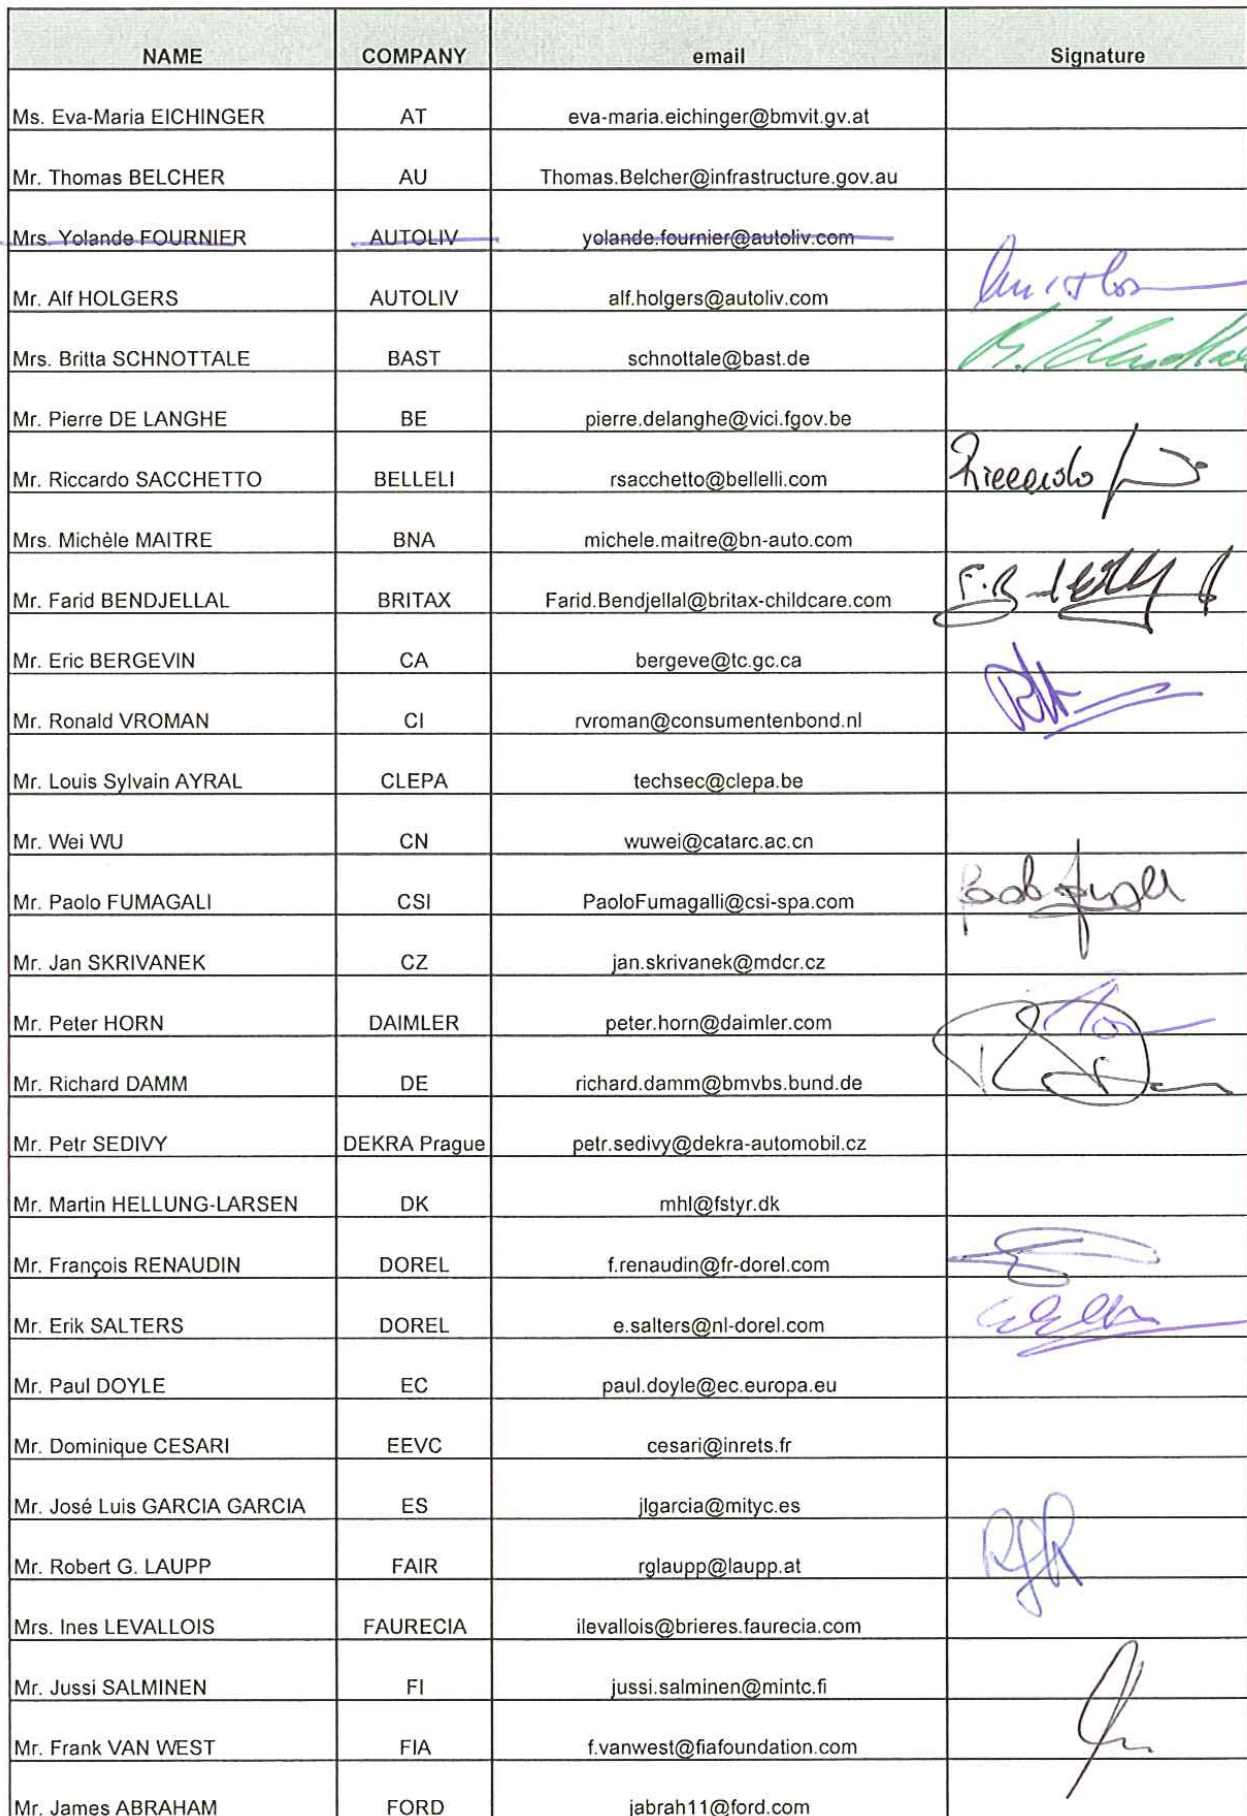 NAME COMPANY email Signature
Ms. Eva-Maria EICHINGER AT eva-maria.eichinger@bmvit.gv.at
Mr. Thomas BELCHER AU Thomas.Belcher@infrastructure.gov.au
Mrs. Yolande FOURNIER AUTOLIV yolande.fournier@autoliv.com
Mr. Alf HOLGERS AUTOLIV alf.holgers@autoliv.com
Mrs. Britta SCHNOTTALE BAST schnottale@bast.de
Mr. Pierre DE LANGHE BE pierre.delanghe@vici.fgov.be
Mr. Riccardo SACCHETTO BELLELI rsacchetto@bellelli.com
Mrs. Michèle MAITRE BNA michele.maitre@bn-auto.com
Mr. Farid BENDJELLAL BRITAX Farid.Bendjellal@britax-childcare.com
Mr. Eric BERGEVIN CA bergeve@tc.gc.ca
Mr. Ronald VROMAN CI rvroman@consumentenbond.nl
Mr. Louis Sylvain AYRAL CLEPA techsec@clepa.be
Mr. Wei WU CN wuwei@catarc.ac.cn
Mr. Paolo FUMAGALI CSI PaoloFumagalli@csi-spa.com
Mr. Jan SKRIVANEK CZ jan.skrivanek@mdcr.cz
Mr. Peter HORN DAIMLER peter.horn@daimler.com
Mr. Richard DAMM DE richard.damm@bmvbs.bund.de
Mr. Petr SEDIVY DEKRA Prague petr.sedivy@dekra-automobil.cz
Mr. Martin HELLUNG-LARSEN DK mhl@fstyr.dk
Mr. François RENAUDIN DOREL f.renaudin@fr-dorel.com
Mr. Erik SALTERS DOREL e.salters@nl-dorel.com
Mr. Paul DOYLE EC paul.doyle@ec.europa.eu
Mr. Dominique CESARI EEVC cesari@inrets.fr
Mr. José Luis GARCIA GARCIA ES jlgarcia@mityc.es
Mr. Robert G. LAUPP FAIR rglaupp@laupp.at
Mrs. Ines LEVALLOIS FAURECIA ilevallois@brieres.faurecia.com
Mr. Jussi SALMINEN FI jussi.salminen@mintc.fi
Mr. Frank VAN WEST FIA f.vanwest@fiafoundation.com
Mr. James ABRAHAM FORD jabrah11@ford.com